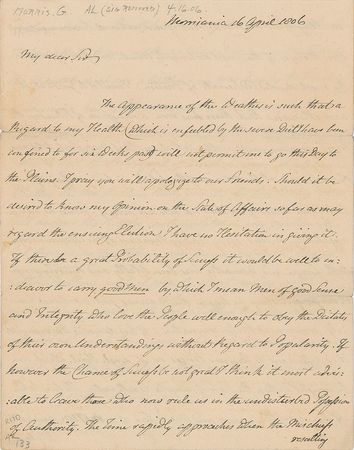 Morris, G. AL (sig removed) 4.16.06
Morrisania 16 April 1806
My dear Sir
The Appearance of the Weather is such that a
Regard to my Health (which is enfeebled by the severe Duress have been
confined to for six Weeks past) will not permit me to go this Day to
the Plains. I pray you will apologize to our Friends. Should it be
desired to know my Opinion on the State of Affairs so far as may
regard the ensuing Election I have no Hesitation in giving it.
If there be a great Probability of Success it would be well to en-
deavor to carry good Men by which I mean Men of good Sense
and Integrity who love the People well enough to obey the Dictates
of their own Understandings without Regard to Popularity. If
however the Chance of Success be not great I think it most advis-
able to leave those who now rule us in the undisturbed Possession
of Authority. The Time rapidly approaches when the Mischiefs
resulting
133